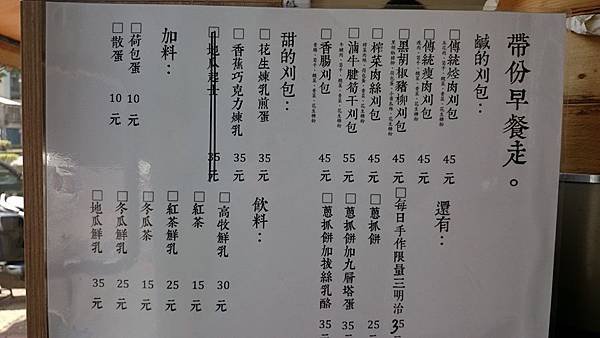 帶份早餐走。
鹹的刈包：
□傳統焢肉刈包 45元
□傳統瘦肉刈包 45元
□黑胡椒豬柳刈包 45元
□榨菜肉絲刈包 45元
□滷牛腱筍干刈包 55元
□香腸刈包 45元
甜的刈包：
□花生煉乳煎蛋 35元
□香蕉巧克力煉乳 35元
□地瓜起士 35元
加料：
□荷包蛋 10元
□散蛋 10元
還有：
□每日手作限量三明治 35元
□蔥抓餅 25元
□蔥抓餅加九層塔蛋 35元
□蔥抓餅加拔絲乳酪 35元
飲料：
□高牧鮮乳 30元
□紅茶 15元
□紅茶鮮乳 25元
□冬瓜茶 15元
□冬瓜鮮乳 25元
□地瓜鮮乳 35元